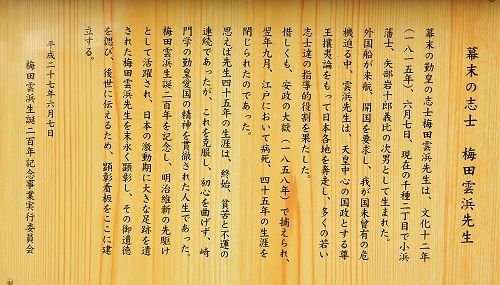 幕末の志士　梅田雲浜先生
幕末の勤皇の志士梅田雲浜先生は、文化十二年
（一八一五年）、六月七日、現在の千種二丁目で小浜
藩士、矢部岩十郎義比の次男として生まれた。
外国船が来航、開国を要求し、我が国未曾有の危
機迫る中、雲浜先生は、天皇中心の国政とする尊
王攘夷論をもって日本各地を奔走し、多くの若い
志士達の指導的役割を果たした。
惜しくも、安政の大獄（一八五八年）で捕えられ、
翌年九月、江戸において病死、四十五年の生涯を
閉じられたのであった。
思えば先生四十五年の生涯は、終始、貧苦と不運の
連続であったが、これを克服し、初心を曲げず、崎
門学の勤皇の精神を貫徹された人生であった。
梅田雲浜生誕二百年を記念し、明治維新の先駆け
として活躍され、日本の激動期に大きな足跡を遺
された梅田雲浜先生を末永く顕彰し、その御遺徳
を偲び、後世に伝えるため、顕彰看板をここに建
立する。
平成二十七年六月七日
梅田雲浜生誕二百年記念事業実行委員会